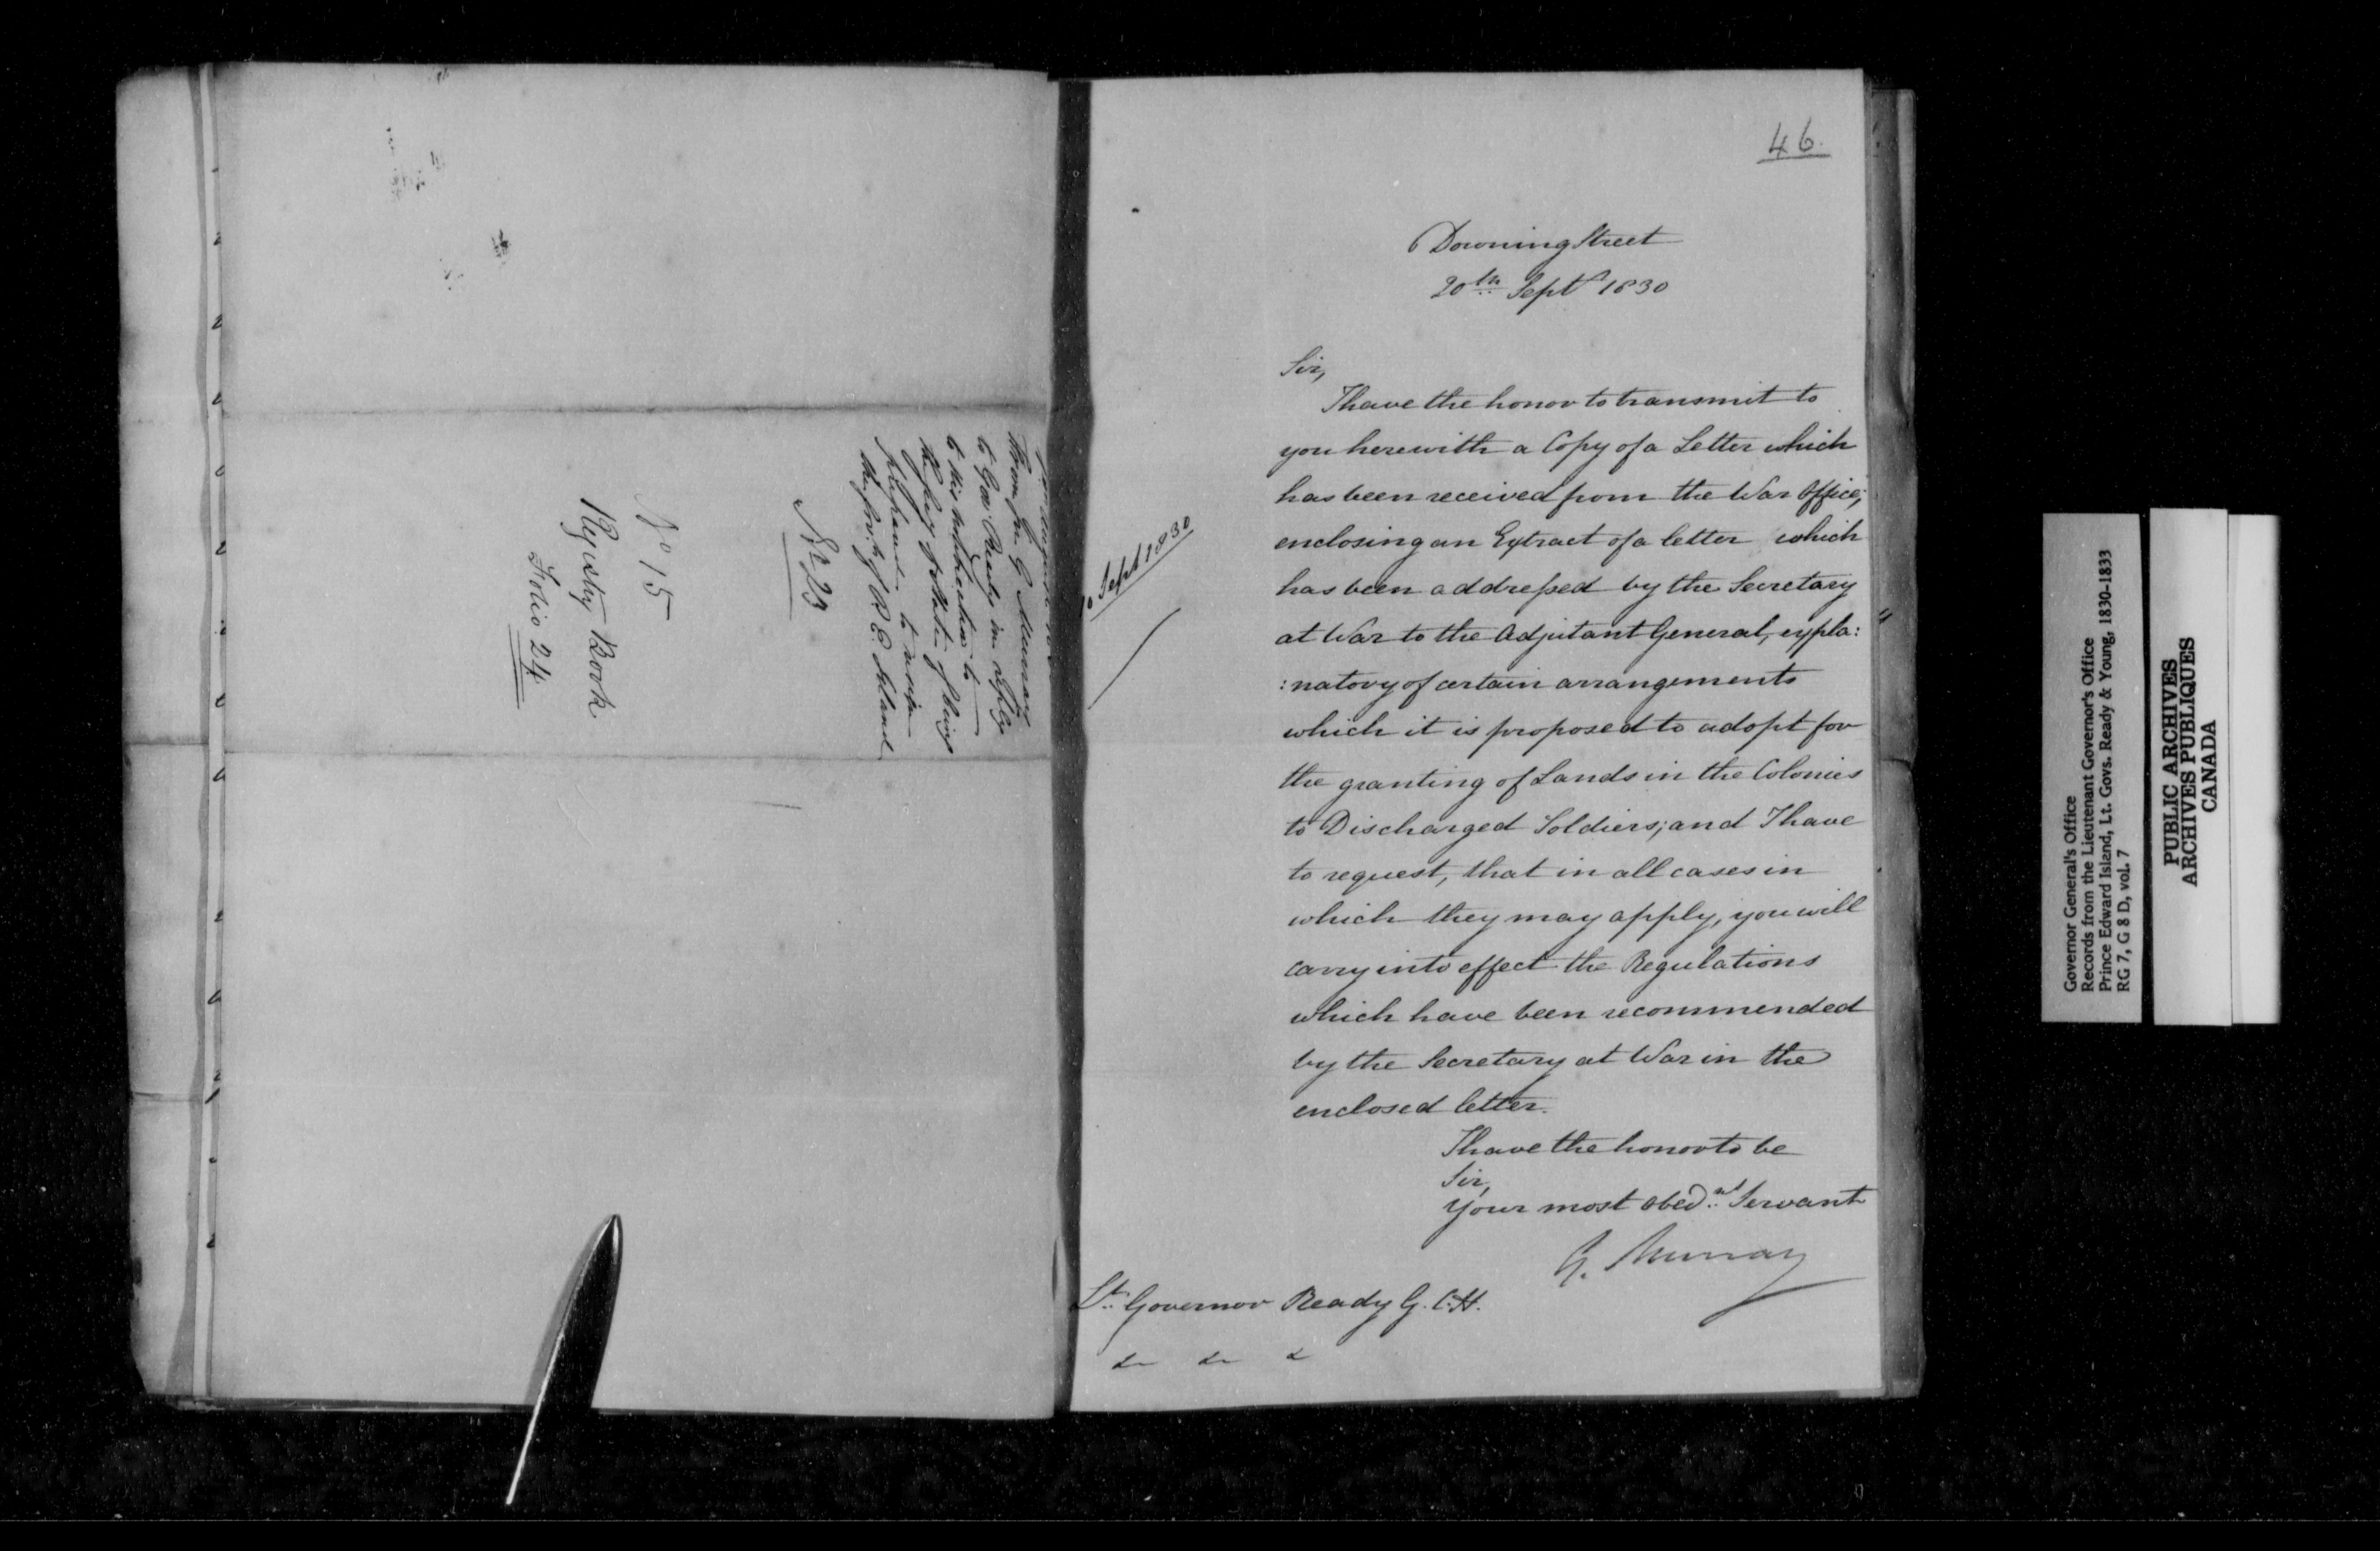 from Sir G Murray
to Gov. Ready in reply
to his application to
Nº 23
No 15
Registry Book
Folio 24
46.
Sept 1830
Downing Street
20th Septr 1830
Sir,
I have the honor to transmit to
you herewith a Copy of a Letter which
has been received from the War Office;
enclosing an Extract of a letter which
has been addressed by the Secretary
at War to the Adjutant General, expla:
:natory of certain arrangements
which it is proposed to adopt for
the granting of Lands in the Colonies
to Discharged Soldiers; and I have
to request, that in all cases in
which they may apply, you will
carry into effect the Regulations
which have been recommended
by the Secretary at War in the
enclosed letter.
I have the honor to be
Sir,
Your most obedt. Servant
G. Murray
Lt. Governor Ready G. C. H.
&c &c &c
Governor General's Office
Records from the Lieutenant Governor's Office
Prince Edward Island, Lt. Govs. Ready & Young, 1830-1833
RG 7, G 8 D, vol. 7
PUBLIC ARCHIVES
ARCHIVES PUBLIQUES
CANADA